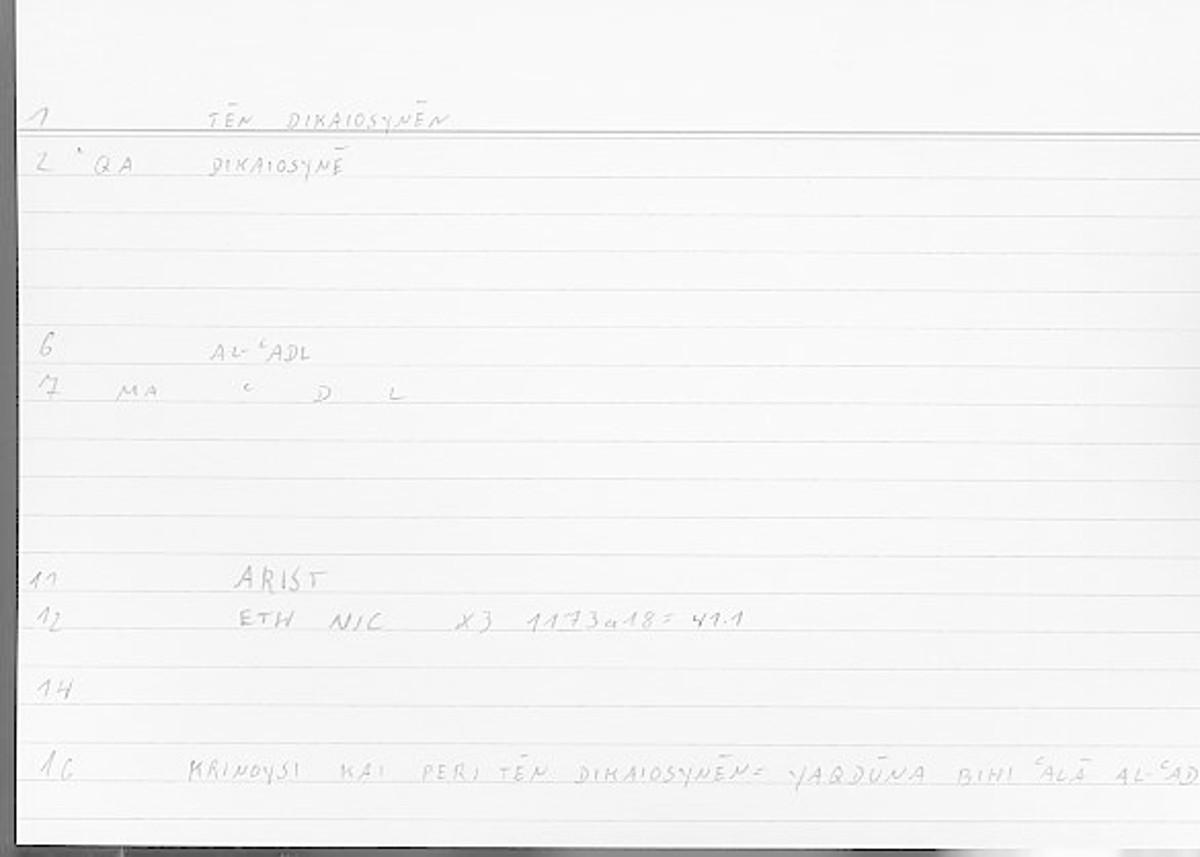 1 TĒN DIKAIOSYNĒN
2 QA DIKAIOSYNĒ
6 AL-ʿADL
7 MA ʿ D L
11 ARIST
12 ETH NIC X3 1173a18= 41.1
14
16 KRINOYSI KAI PERI TĒN DIKAIOSYNĒN= YAQDŪNA BIHI ʿALĀ AL-ʿAD